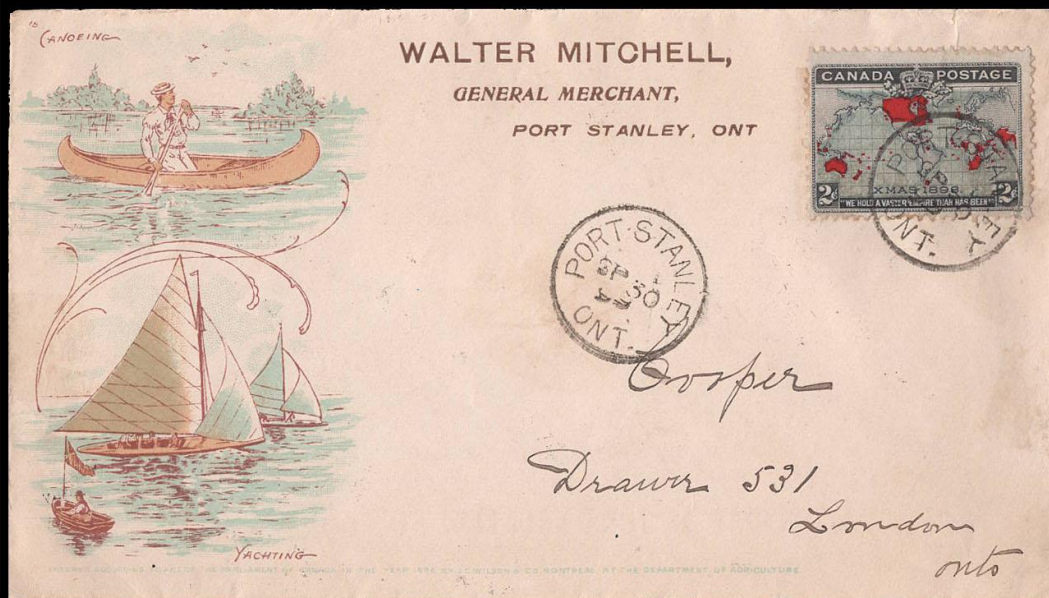 CANOEING
WALTER MITCHELL,
GENERAL MERCHANT,
PORT STANLEY, ONT
CANADA POSTAGE
XMAS 1898
2c 2c
"WE HOLD A VASTER EMPIRE THAN HAS BEEN"
PORT STANLEY
ONT.
PORT STANLEY
SP 30
ONT.
Cooper
Drawer 531
London
Onto
YACHTING
PARLIAMENT OF CANADA IN THE YEAR BY J.C. WILSON & CO. MONTREAL AT THE DEPARTMENT OF AGRICULTURE